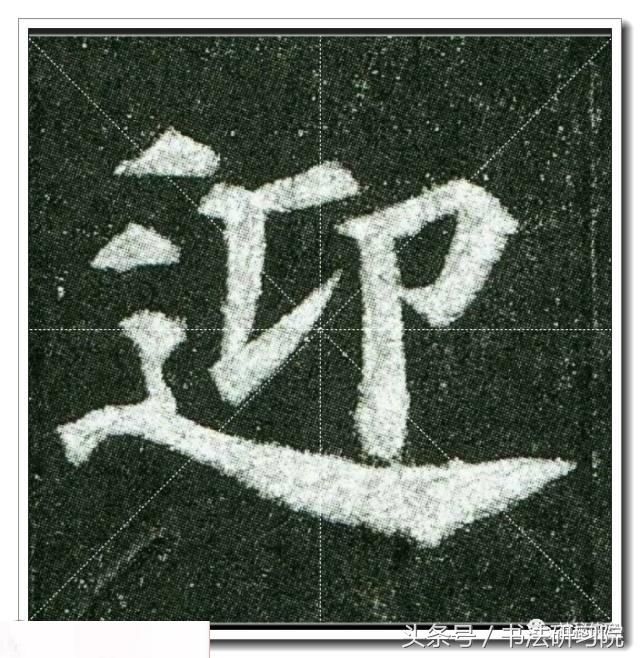 迎
头条号 / 书法研习院